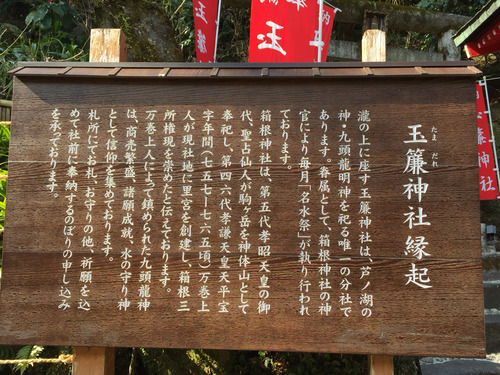 玉簾神社縁起
たま だれ
瀧の上に座す玉簾神社は、芦ノ湖の
神・九頭龍明神を祀る唯一の分社で
あります。眷属として、箱根神社の神
官により毎月「名水祭」が執り行われ
ております。
箱根神社は、第五代孝昭天皇の御
代、聖占仙人が駒ヶ岳を神体山として
奉祀し、第四六代孝謙天皇天平宝
字年間(七五七ー七六五頃)万巻上
人が現社地に里宮を創建し、箱根三
所権現を崇めたと伝えております。
万巻上人によって鎮められた九頭龍神
は、商売繁盛、諸願成就、水の守り神
として信仰を集めております。
札所にてお札、お守りの他、祈願を込
めて社前に奉納するのぼりの申し込み
を承っております。
玉簾
奉納
玉
神社